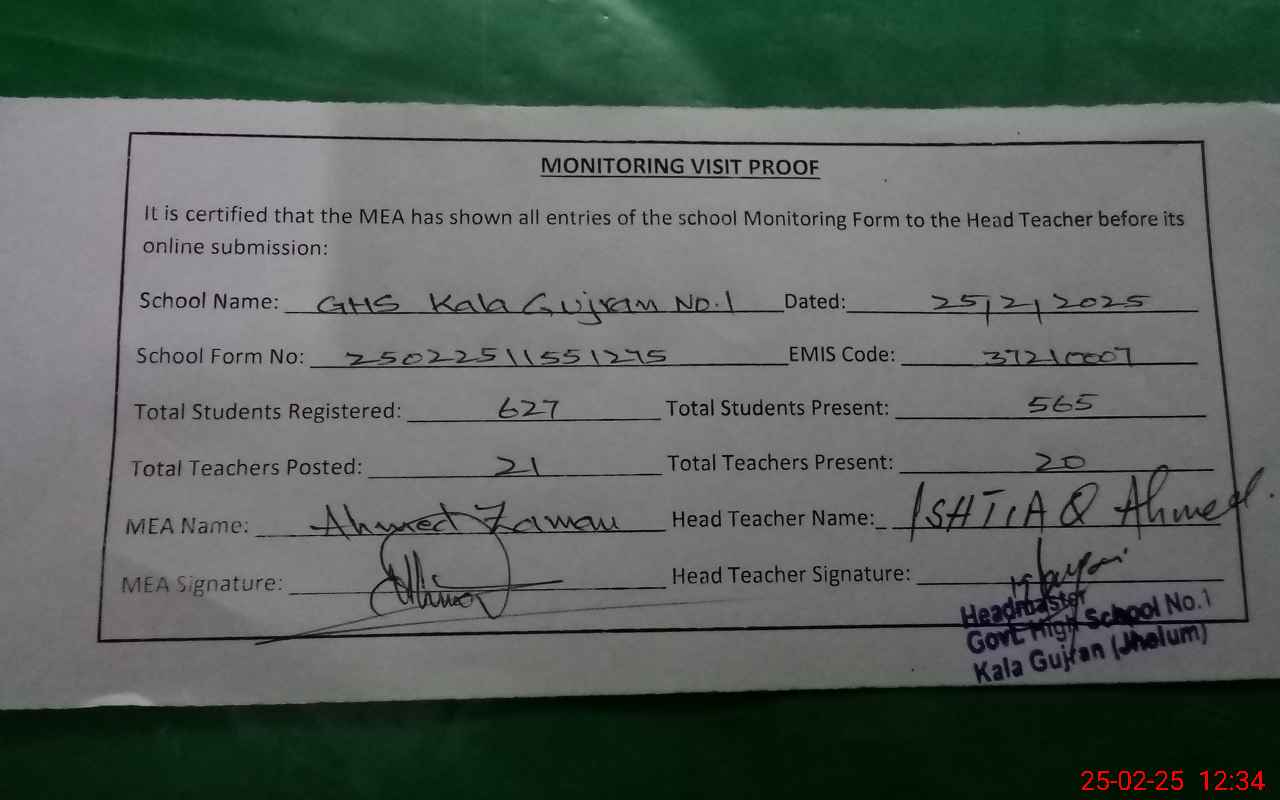 MONITORING VISIT PROOF
It is certified that the MEA has shown all entries of the school Monitoring Form to the Head Teacher before its
online submission:
School Name: GHS Kala Gujran No.1 Dated: 25/2/2025
School Form No: 25022511551275 EMIS Code: 37210007
Total Students Registered: 627 Total Students Present: 565
Total Teachers Posted: 21 Total Teachers Present: 20
MEA Name: Ahmed Zaman Head Teacher Name: ISHTIAQ Ahmed.
MEA Signature: Head Teacher Signature:
Headmaster
Govt. High School No.1
Kala Gujran (Jhelum)
25-02-25 12:34